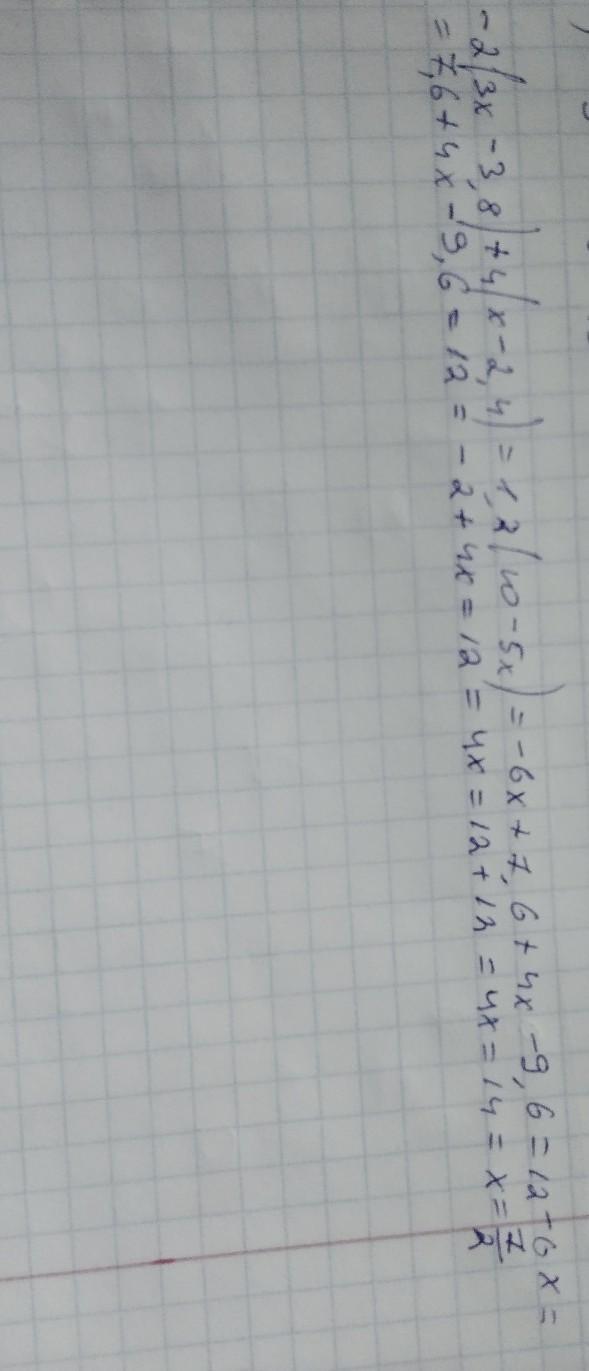 -2(3x-3,8)+4(x-2,4)=1,2(10-5x)=-6x+7,6+4x-9,6=12-6x=
=7,6+4x-9,6=12=-2+4x=12=4x=12+12=4x=14=x=7/2